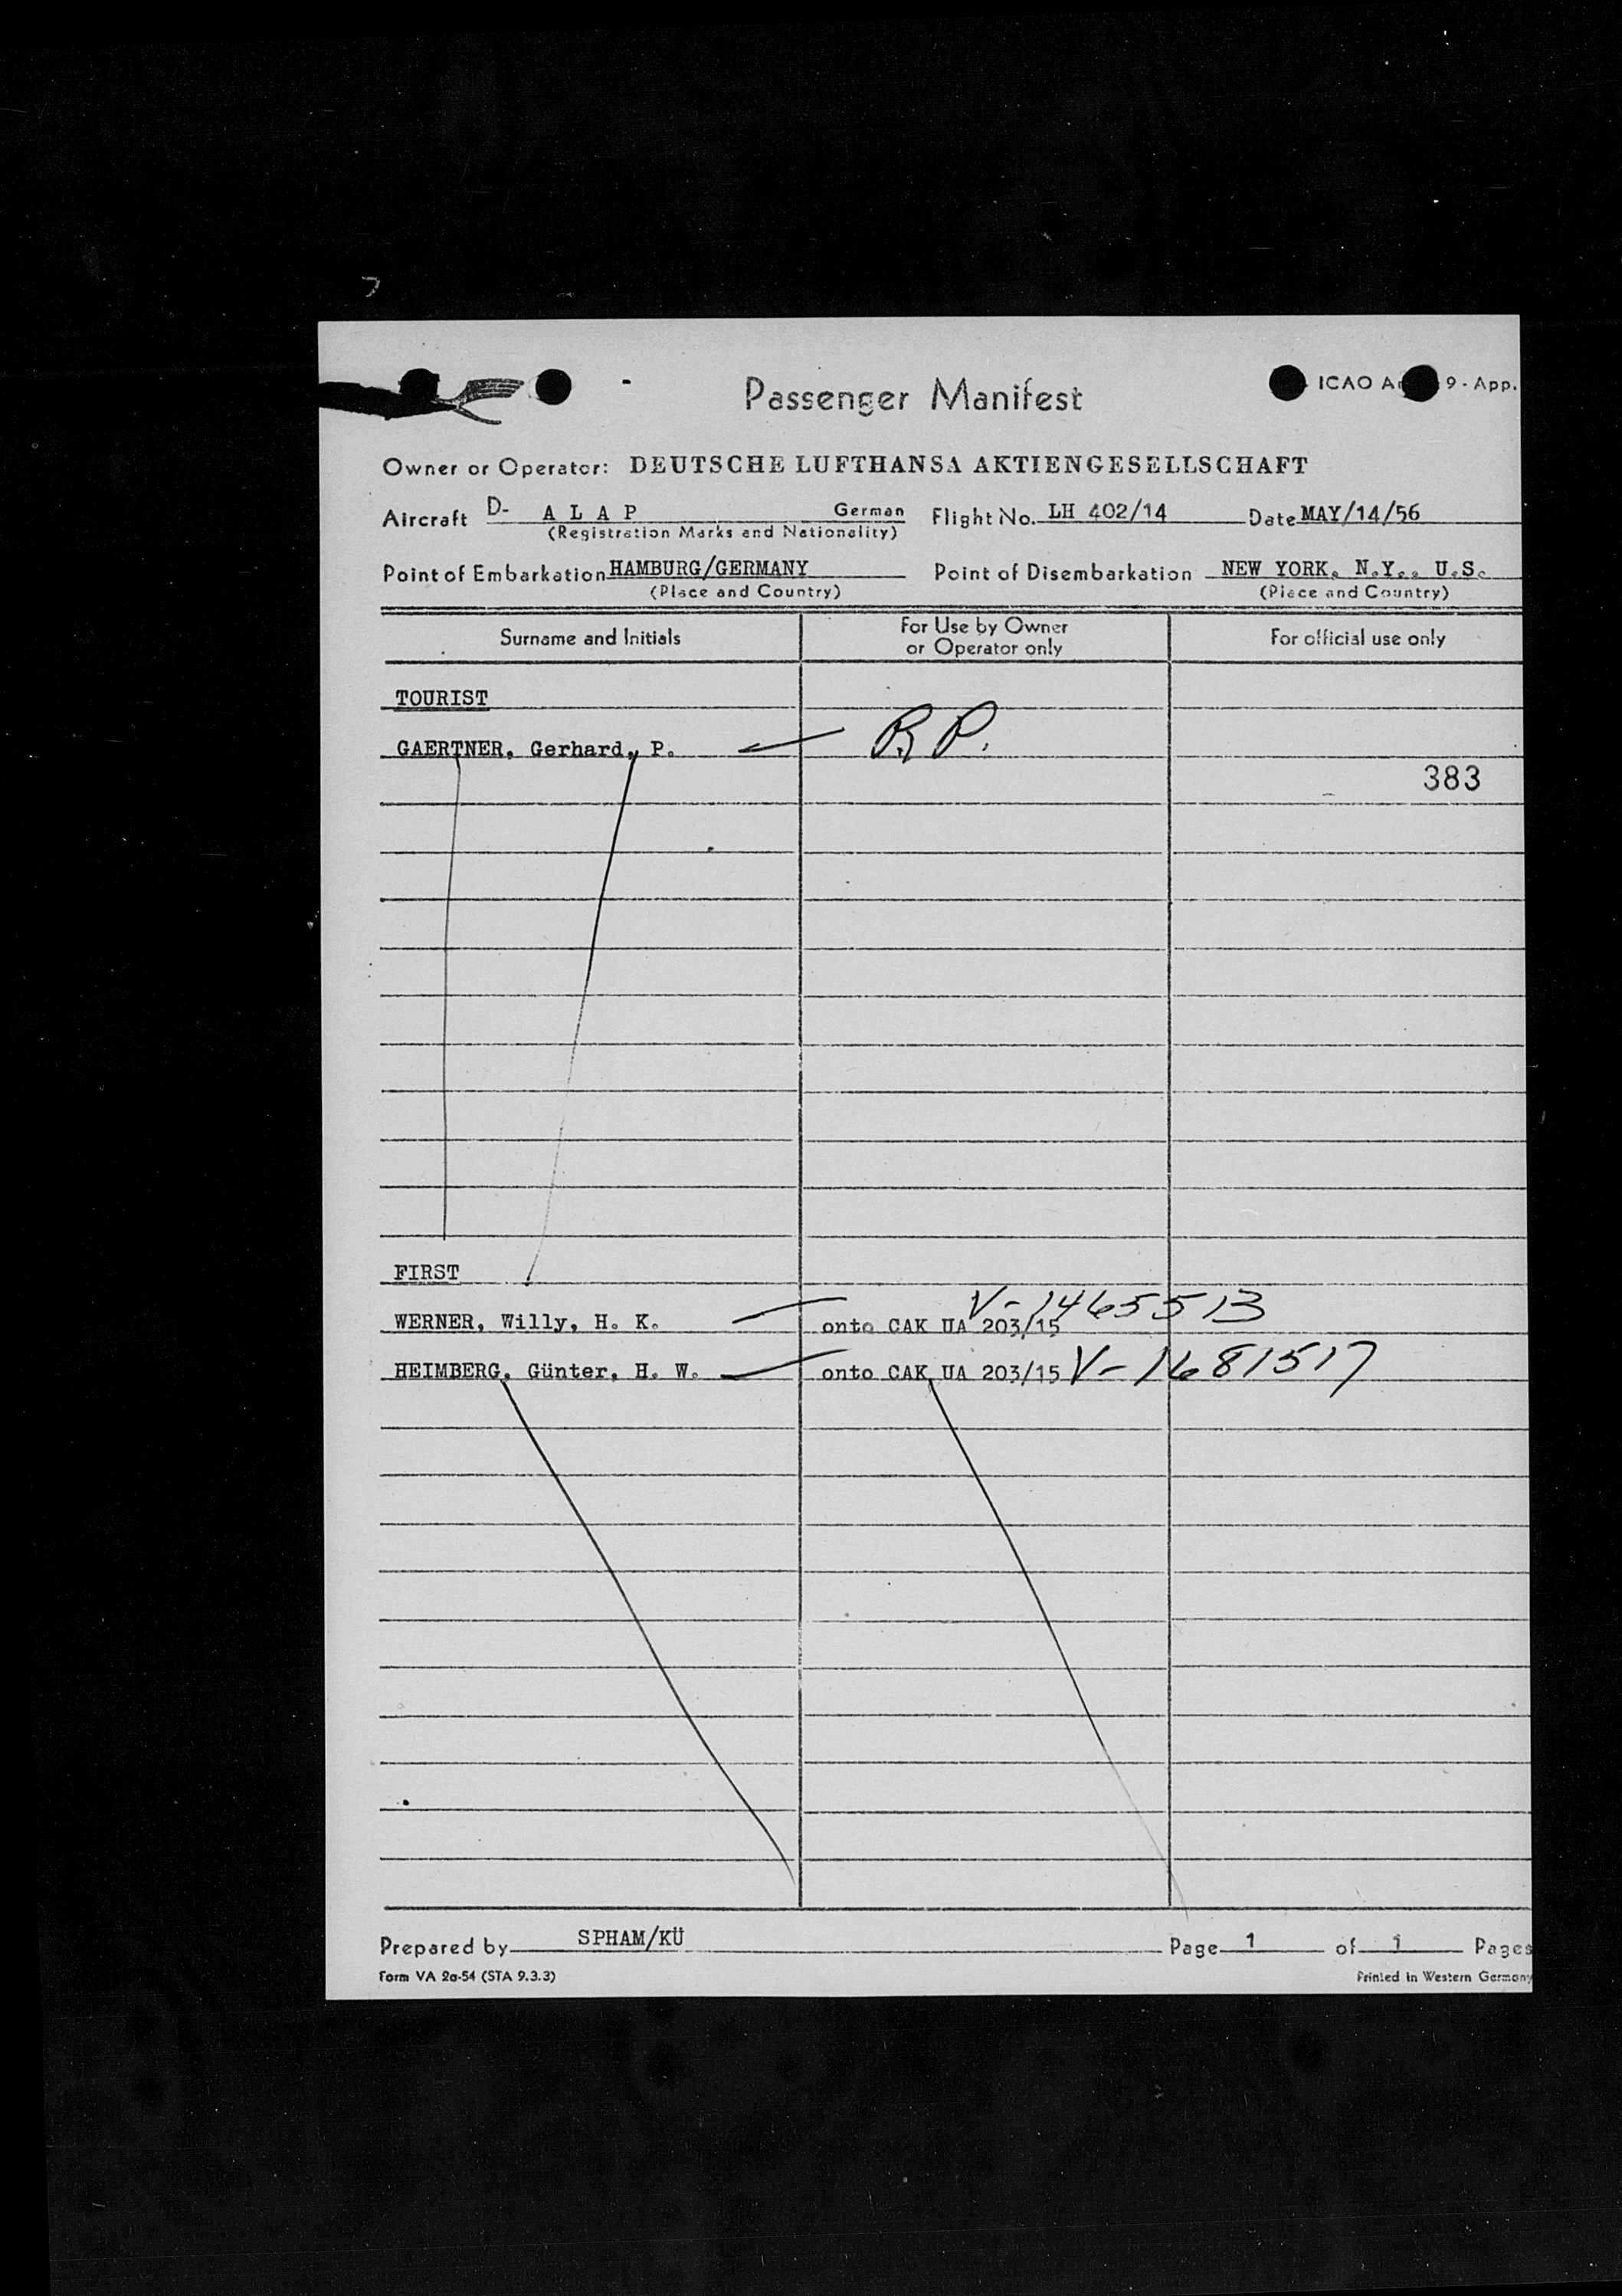 Passenger Manifest
ICAO A 9 - App.
Owner or Operator: DEUTSCHE LUFTHANSA AKTIENGESELLSCHAFT
Aircraft D- A L A P German Flight No. LH 402/14 Date MAY/14/56
(Registration Marks and Nationality)
Point of Embarkation HAMBURG/GERMANY Point of Disembarkation NEW YORK, N.Y., U.S.
(Place and Country) (Place and Country)
Surname and Initials For Use by Owner or Operator only For official use only
TOURIST
GAERTNER, Gerhard, P.
383
FIRST
WERNER, Willy, H. K. onto CAK UA 203/15 V-1465513
HEIMBERG, Günter, H. W. onto CAK UA 203/15 V-1681517
Prepared by SPHAM/KÜ Page 1 of 1 Pages
Form VA 2a-54 (STA 9.3.3) Printed in Western Germany